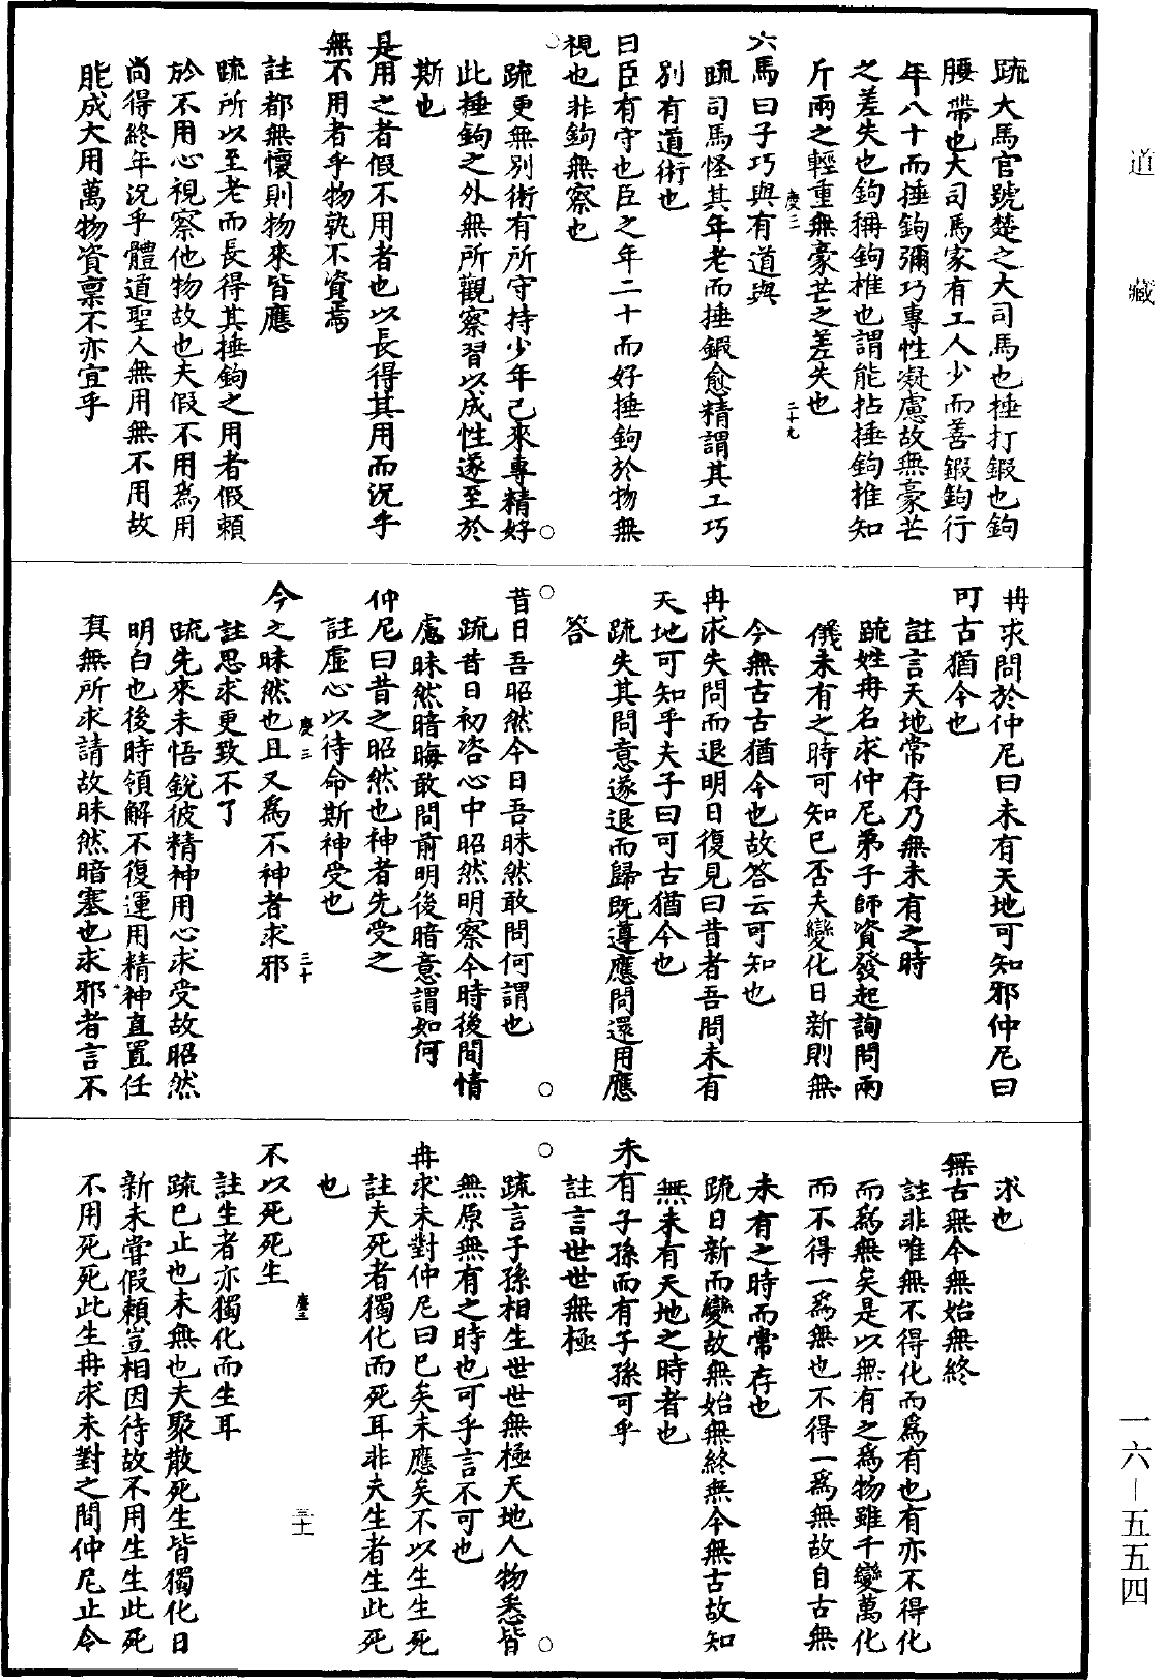 道藏
疏大馬官號楚之大司馬也捶打鍛也鉤
腰帶也大司馬家有工人少而善鍛鉤行
年八十而捶鉤彌巧專性凝慮故無豪芒
之差失也鉤稱鉤椎也謂能拈捶鉤椎知
斤兩之輕重無豪芒之差失也
慶三
二十九
六馬曰子巧與有道與
疏司馬怪其年老而捶鍛愈精謂其工巧
別有道術也
曰臣有守也臣之年二十而好捶鉤於物無
視也非鉤無察也
疏更無別術有所守持少年已來專精好
此捶鉤之外無所觀察習以成性遂至於
斯也
是用之者假不用者也以長得其用而況乎
無不用者乎物孰不資焉
註都無懷則物來皆應
疏所以至老而長得其捶鉤之用者假賴
於不用心視察他物故也夫假不用為用
尚得終年況乎體道聖人無用無不用故
能成大用萬物資稟不亦宜乎
冉求問於仲尼曰未有天地可知邪仲尼曰
可古猶今也
註言天地常存乃無未有之時
疏姓冉名求仲尼弟子師資發起詢問兩
儀未有之時可知已否夫變化日新則無
今無古古猶今也故答云可知也
冉求失問而退明日復見曰昔者吾問未有
天地可知乎夫子曰可古猶今也
疏失其問意遂退而歸既遵應問還用應
答
昔日吾昭然今日吾昧然敢問何謂也
疏昔日初咨心中昭然明察今時後問情
慮昧然暗晦敢問前明後暗意謂如何
仲尼曰昔之昭然也神者先受之
註虛心以待命斯神受也
慶三
三十
今之昧然也且又為不神者求邪
註思求更致不了
疏先來未悟銳彼精神用心求受故昭然
明白也後時領解不復運用精神直置任
真無所求請故昧然暗塞也求邪者言不
求也
無古無今無始無終
註非唯無不得化而為有也有亦不得化
而為無矣是以無有之為物雖千變萬化
而不得一為無也不得一為無故自古無
未有之時而常存也
疏日新而變故無始無終無今無古故知
無未有天地之時者也
未有子孫而有子孫可乎
註言世世無極
疏言子孫相生世世無極天地人物悉皆
無原無有之時也可乎言不可也
冉求未對仲尼曰已矣未應矣不以生生死
註夫死者獨化而死耳非夫生者生此死
也
慶三
三十一
不以死死生
註生者亦獨化而生耳
疏已止也未無也夫聚散死生皆獨化日
新未嘗假賴豈相因待故不用生生此死
不用死死此生冉求未對之間仲尼止令
一六—五五四